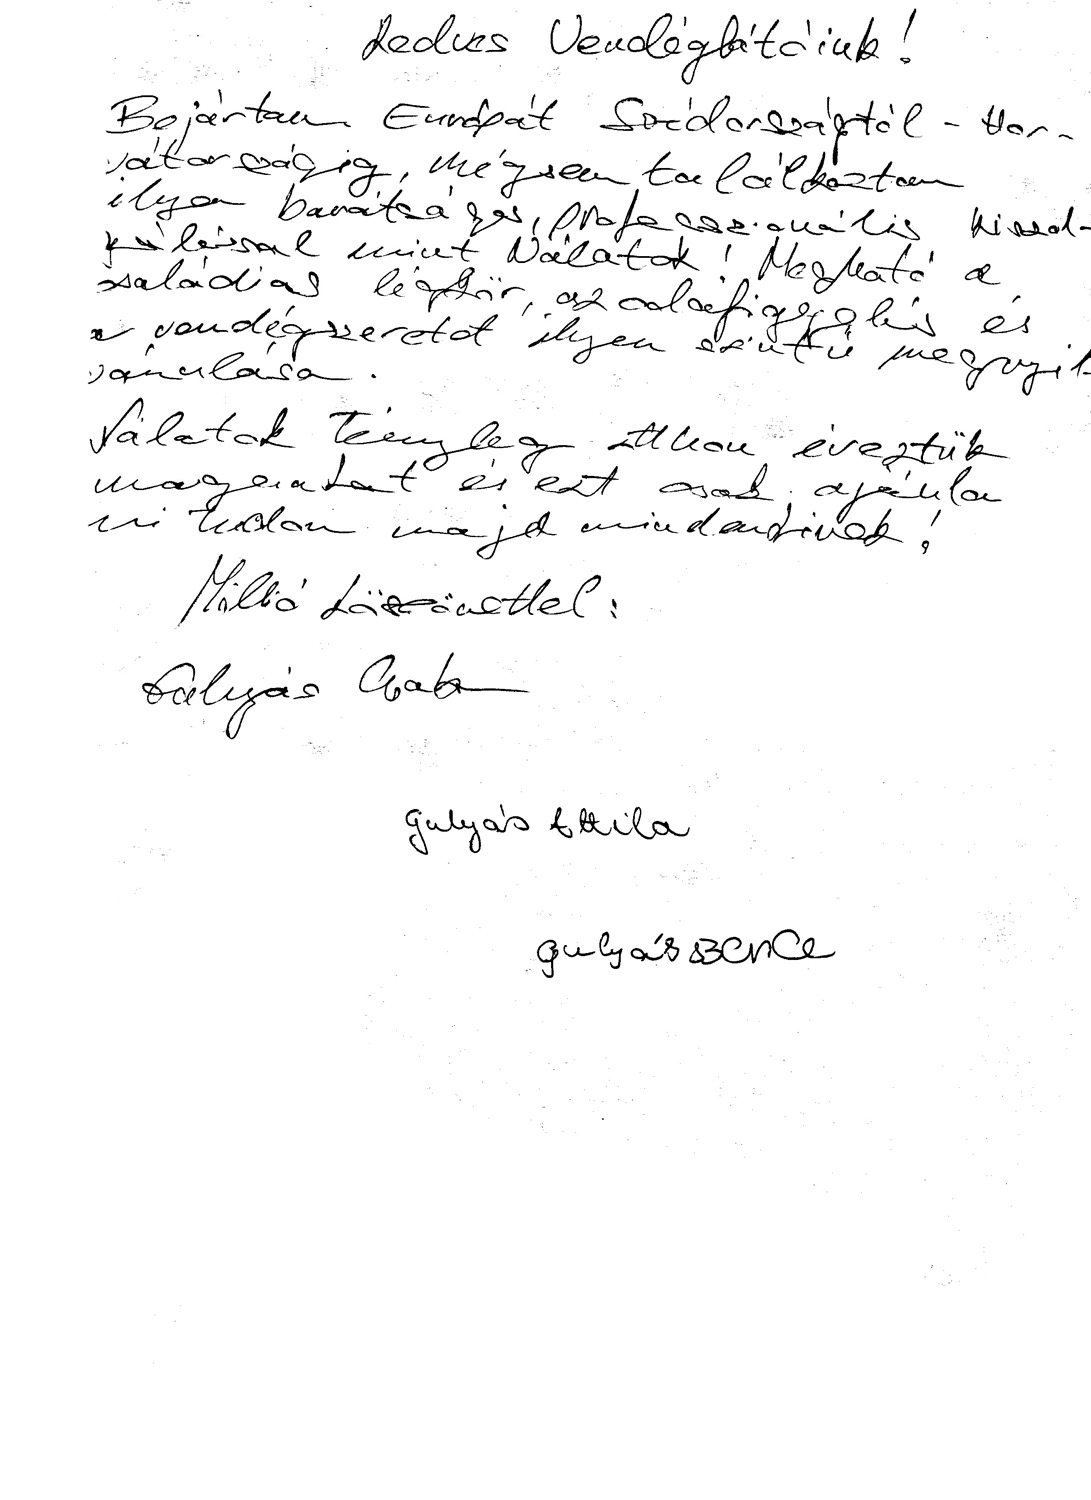 Kedves Vendéglátóink!
Bejártam Európát Svédországtól - Hor-
vátországig, mégsem találkoztam
ilyen barátságos, professzionális kiszol-
gálással mint Nálatok! Megható a
családias légkör, az odafigyelés és
a vendégszeretet ilyen szintű megnyil-
vánulása.
Nálatok tényleg itthon éreztük
magunkat és ezt csak ajánla
ni tudom majd mindenkinek!
Millió köszönettel:
Gulyás Csaba
Gulyás Attila
Gulyás BENCE